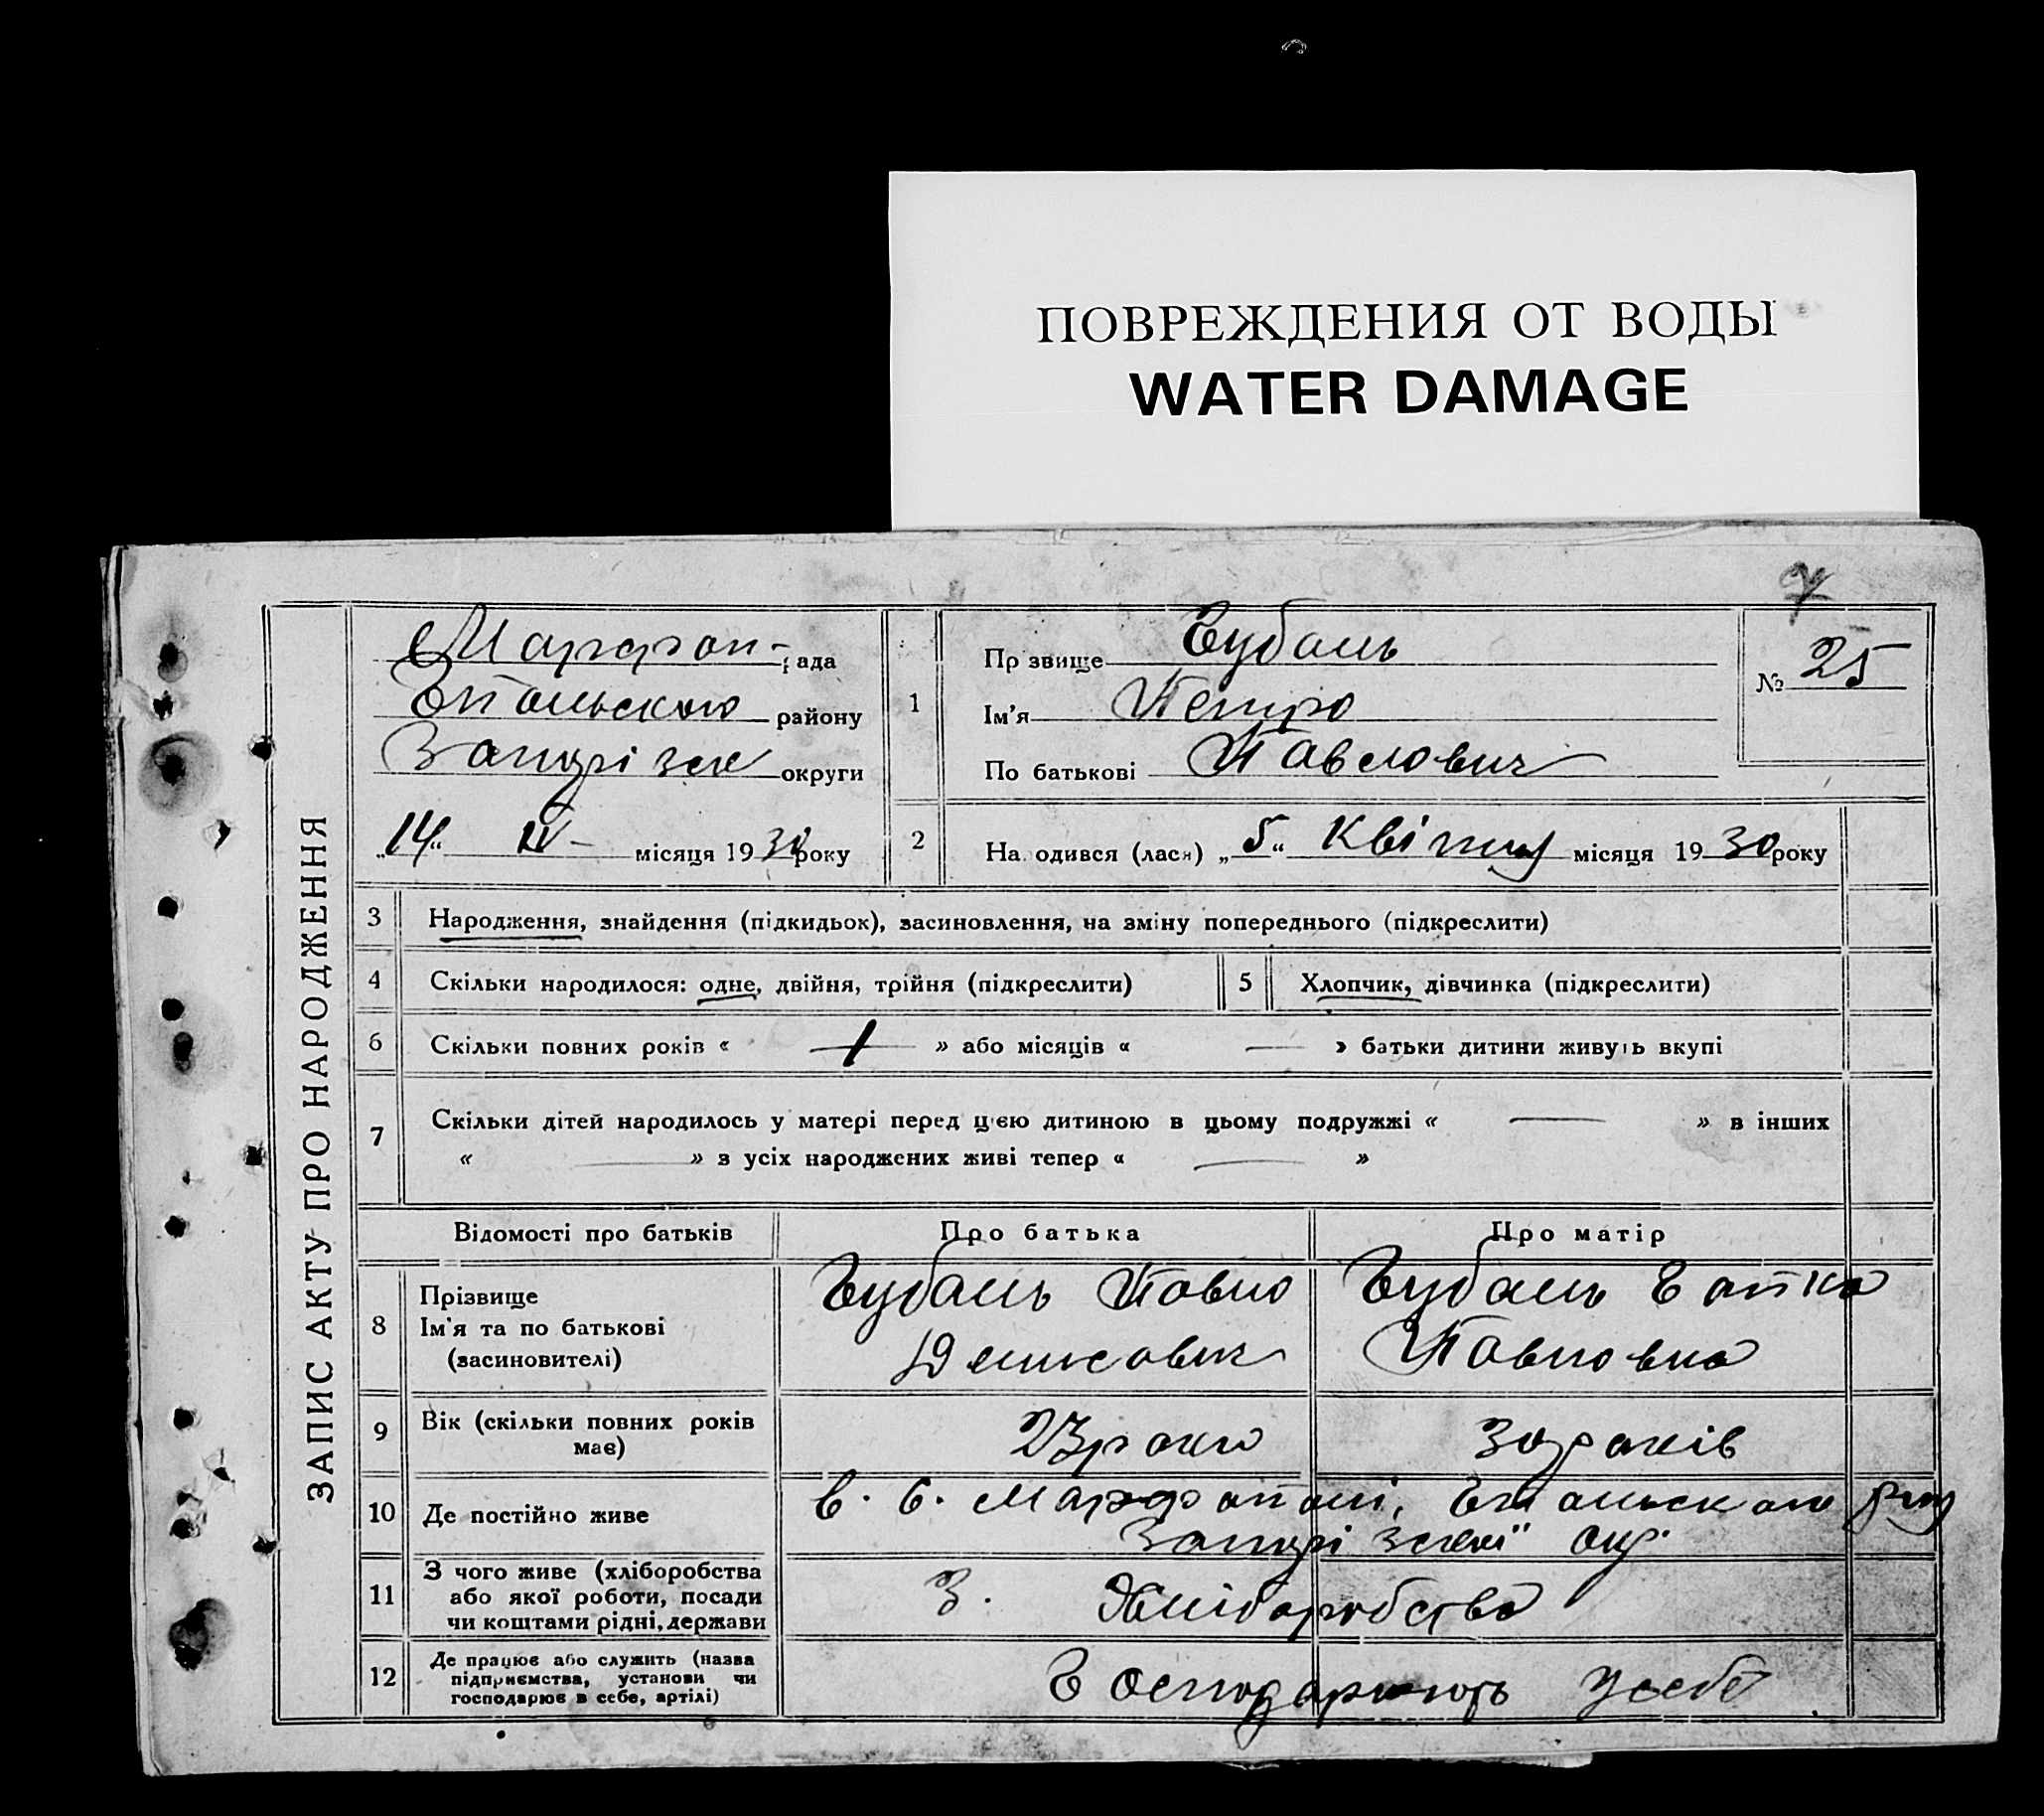 ПОВРЕЖДЕНИЯ ОТ ВОДЫ
WATER DAMAGE
ЗАПИС АКТУ ПРО НАРОДЖЕННЯ
Марфоп- рада
района
Запорізск округи
„14“ IV- місяця 1930 року
1
Прізвище Губаль
Ім'я Петро
По батькові Павлович
№ 25
2 Народився (лася) „5“ Квітня місяця 1930 року
3 Народження, знайдення (підкидьок), засиновлення, на зміну попереднього (підкреслити)
4 Скільки народилося: одне, двійня, трійня (підкреслити) 5 Хлопчик, дівчинка (підкреслити)
6 Скільки повних років « 1 » або місяців « — » батьки дитини живуть вкупі
7 Скільки дітей народилось у матері перед цією дитиною в цьому подружжі « — » в інших
« — » з усіх народжених живі тепер « — »
Відомості про батьків Про батька Про матір
8 Прізвище
Ім'я та по батькові
(засиновителі)
Губаль Павло
Денисович
Губаль Гапка
Павловна
9 Вік (скільки повних років
має)
23 роки 30 років
10 Де постійно живе
в. с. Марфополі, рну
Запорізскої окр.
11 З чого живе (хліборобства
або якої роботи, посади
чи коштами рідні, держави
З. Хліборобства
12 Де працює або служить (назва
підприємства, установи чи
господарює в себе, артілі)
Господарюють усебе